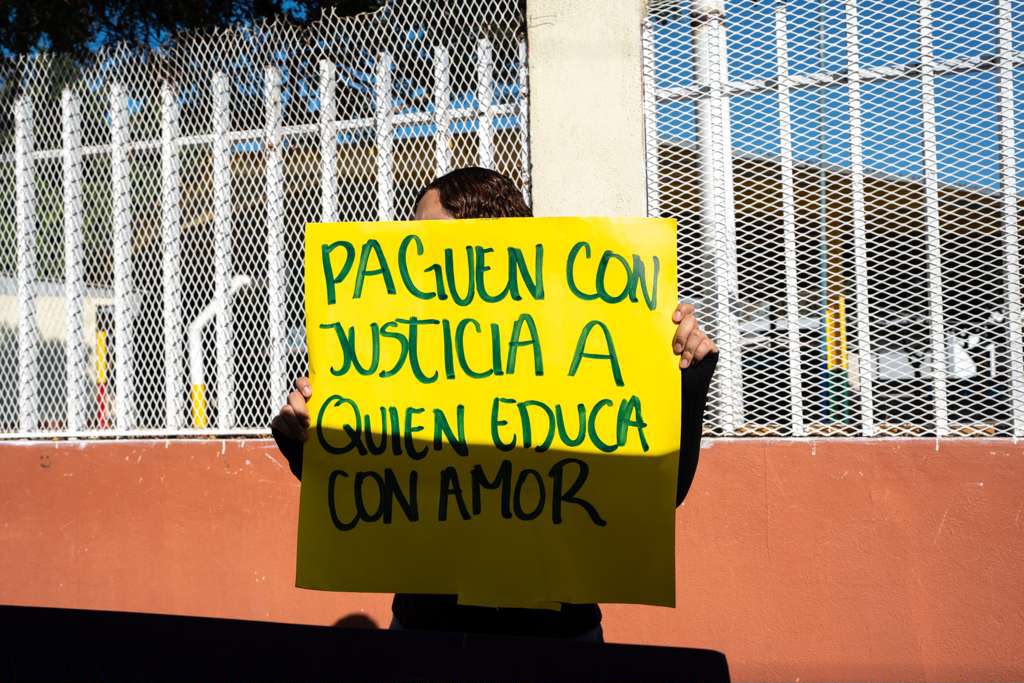 PAGUEN CON
JUSTICIA A
QUIEN EDUCA
CON AMOR